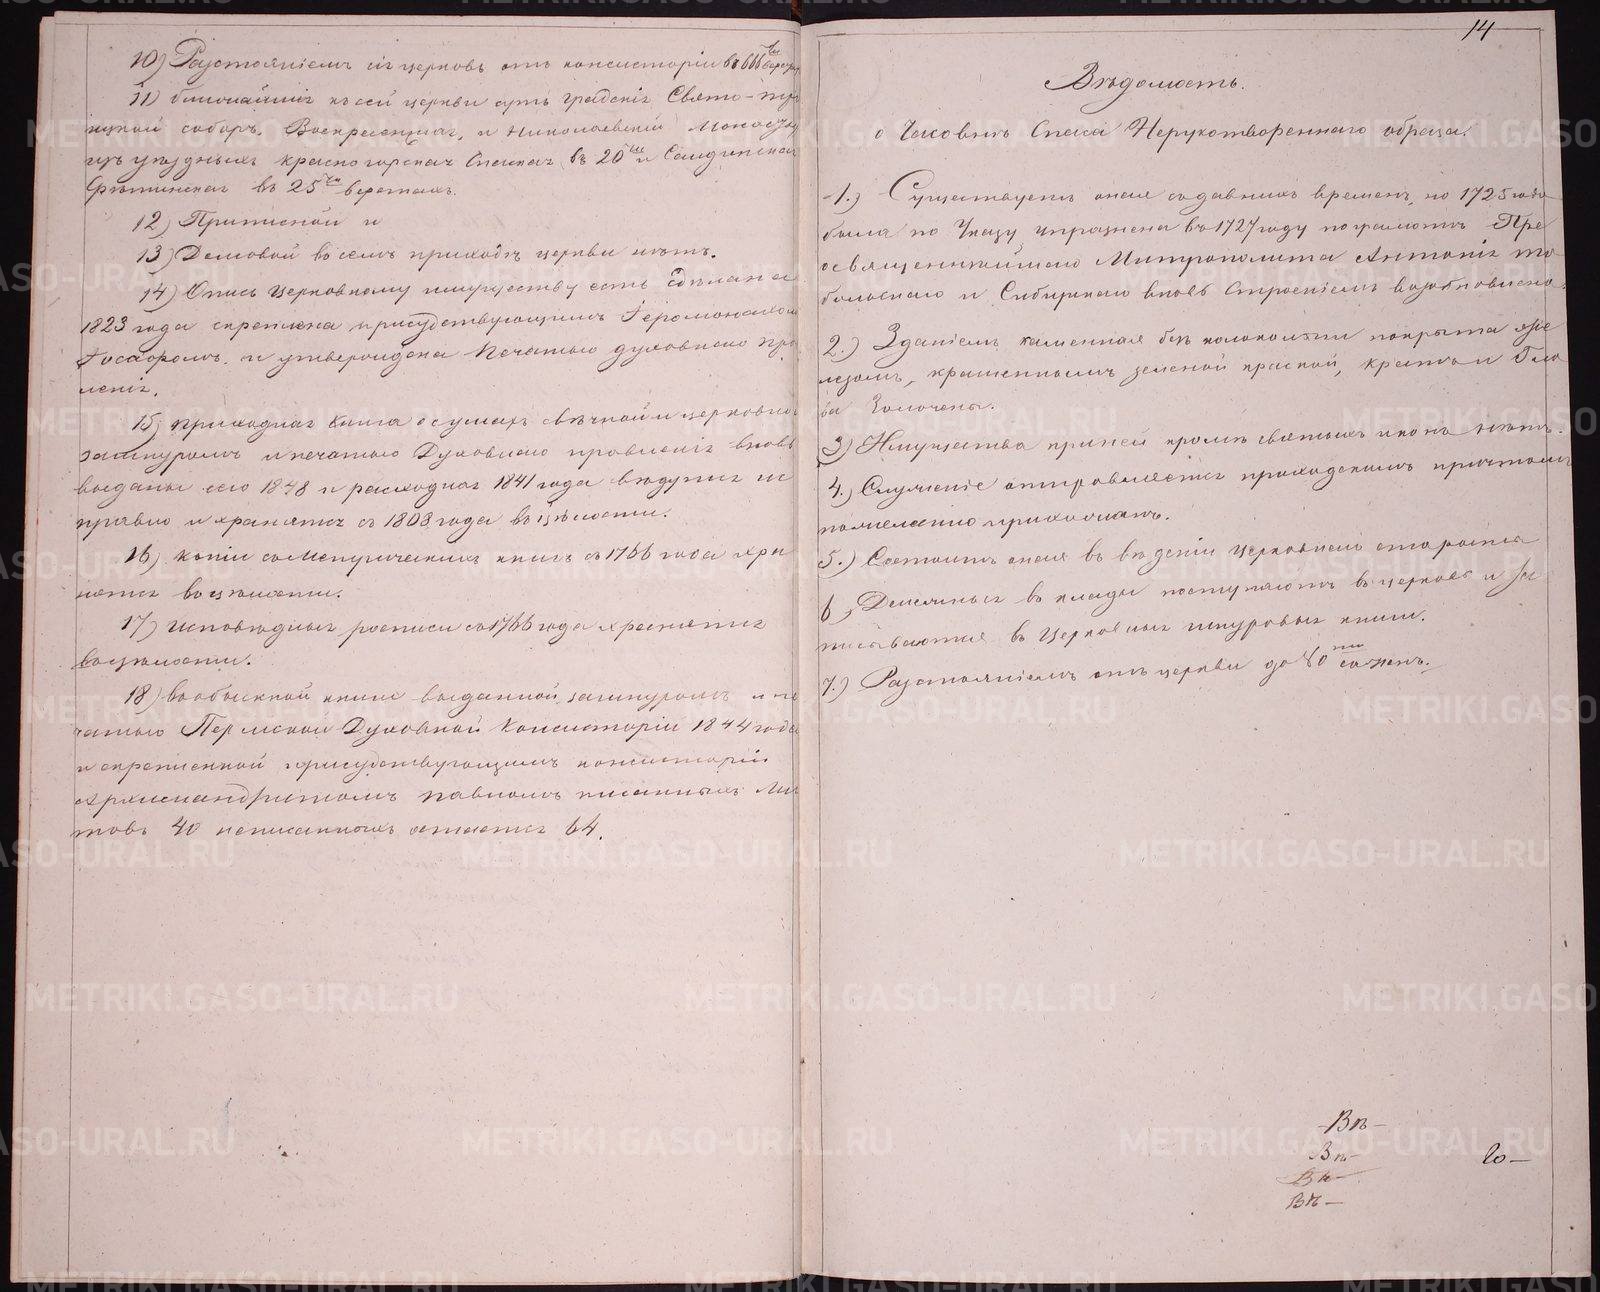 10) Разстояніемъ сія церковь отъ консисторіи въ 666ти верстах
11) ближайшія къ сей церкви суть градскія Свято-тро
ицкой соборъ, Воскресенская, и Николаевскій Монасты
изъ уездныхъ красногорская Спаская въ 20ти и Салдинская
въ 25ти верстахъ.
12) Приписной и
13) Домовой въ семъ приходѣ церкви нѣтъ.
14) Опись Церковному имуществу есть сдѣлана
1823 года скреплена присудствующимъ Іеромонахом
и утверждена Печатью духовнаго пра
ленія.
15) приходная книга о сумахъ свѣчной и церковно
зашнуромъ и печатью Духовнаго правленія вновь
выданы сего 1848 и расходная 1841 года ведутся ис
правно и хранятся съ 1808 года въ цѣлости.
16) копіи съ Метрическихъ книгъ съ 1766 года хра
нятся въ цѣлости.
17) исповѣдныя росписи съ 1766 года хранятся
въ цѣлости.
18) въ обыскной книге выданной зашнуромъ и пе
чатью Пермской Духовной Консисторіи 1844 года
и скрепленной присудствующимъ консисторіи
Архимандритомъ Павломъ писанныхъ ли
товъ 40 неписанныхъ остается 64.
14
Вѣдомость.
о Часовнѣ Спаса Нерукотвореннаго образа.
1.) Существуетъ оная съ давнихъ временъ, но 1725 года
была по Указу упразнена въ 1727 году по грамотѣ Пре
освященнѣйшаго Митрополита Антонія то
больскаго и Сибирскаго вновь строеніемъ возобновлена.
2.) Зданіемъ каменная безъ колокольни покрыта же
лезомъ, крашеннымъ зеленой краской, крестъ и Гла
ва Золочены.
3) Имущества при ней кромѣ святыхъ иконъ нѣтъ.
4.) Служеніе отправляется приходскимъ причтомъ
по желанію прихожанъ.
5.) Состоитъ оная въ вѣденіи Церковнаго старосты
6) Денежныя вклады поступаютъ въ церковь и за
писываются въ Церковныя шнуровыя книги.
7.) Разстояніемъ отъ церкви до 80ти саженъ.
Вѣ-
Вѣ-
Вѣ-
Вѣ-